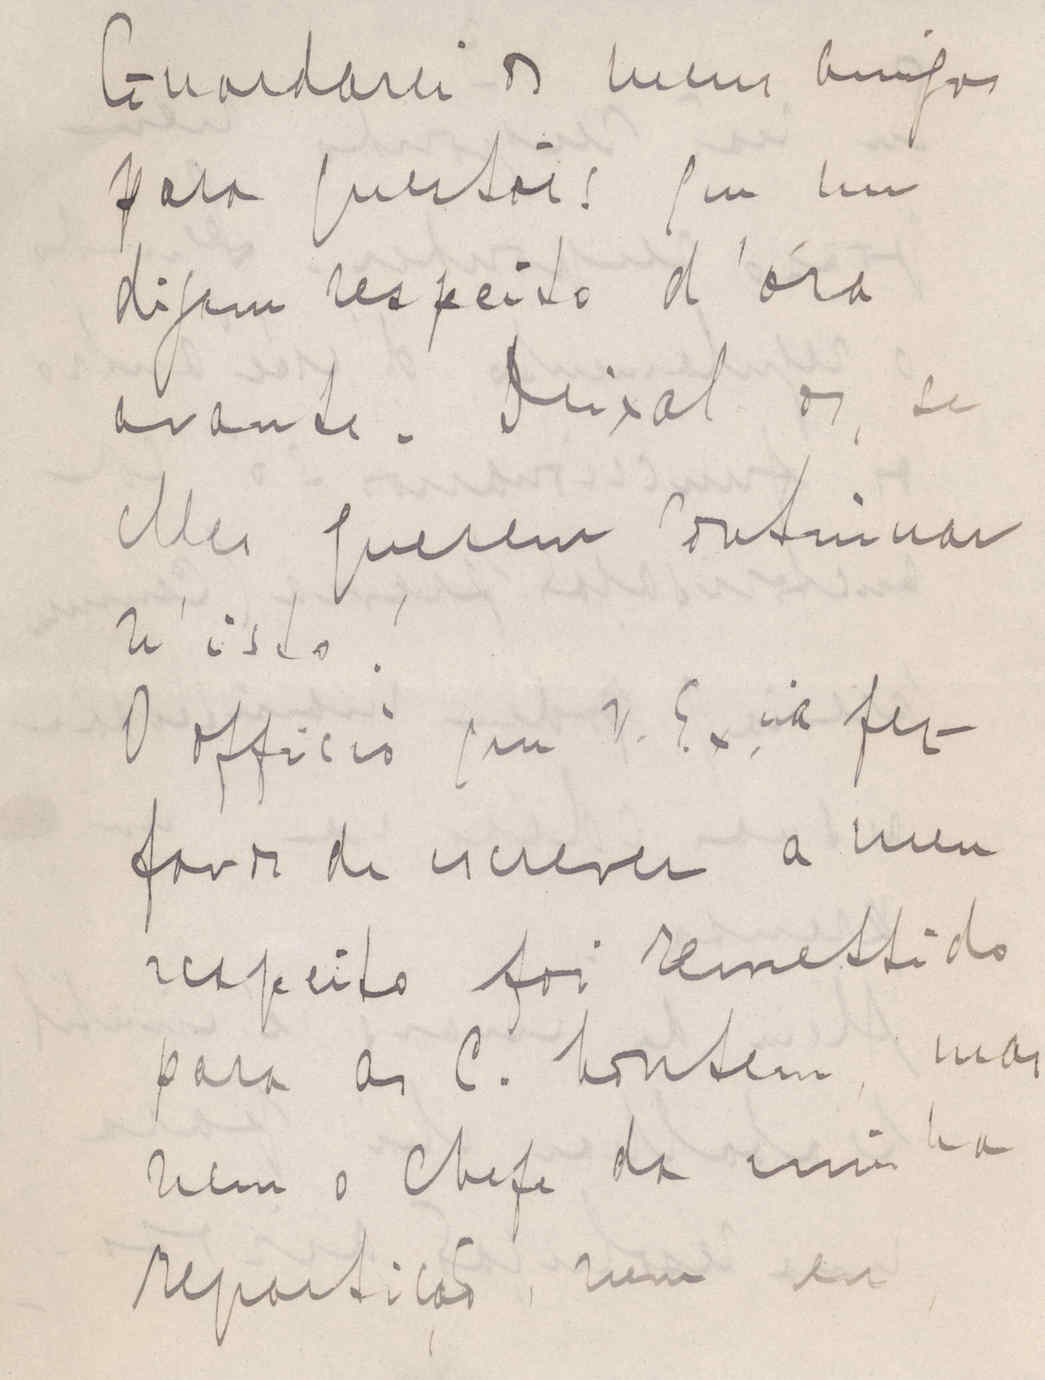 Guardarei os meus amigos
para questões que me
digam respeito d'óra
avante. Deixal os, se
elles querem continuar
n'isto!
O officio que V. Ex.cia fez
favor de escrever a meu
respeito foi remettido
para as C. hontem, mas
nem o Chefe da minha
repartição, nem eu,